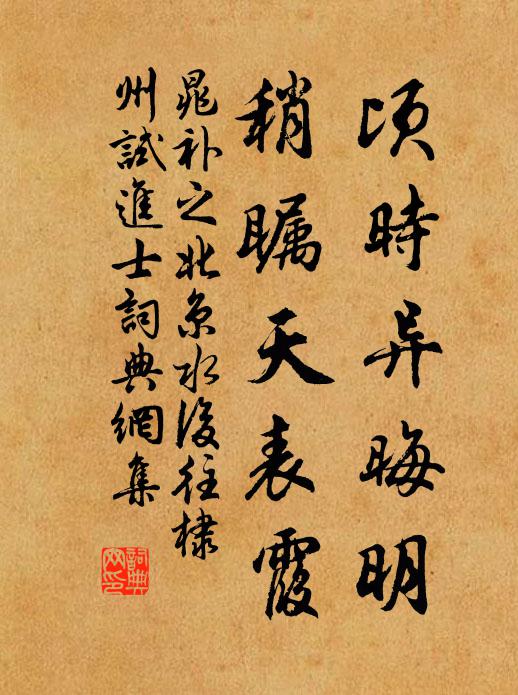 頃時异晦明
稍瞩天表霞
晁补之北京水後往棣
州試進士詞典網集
詞典网印